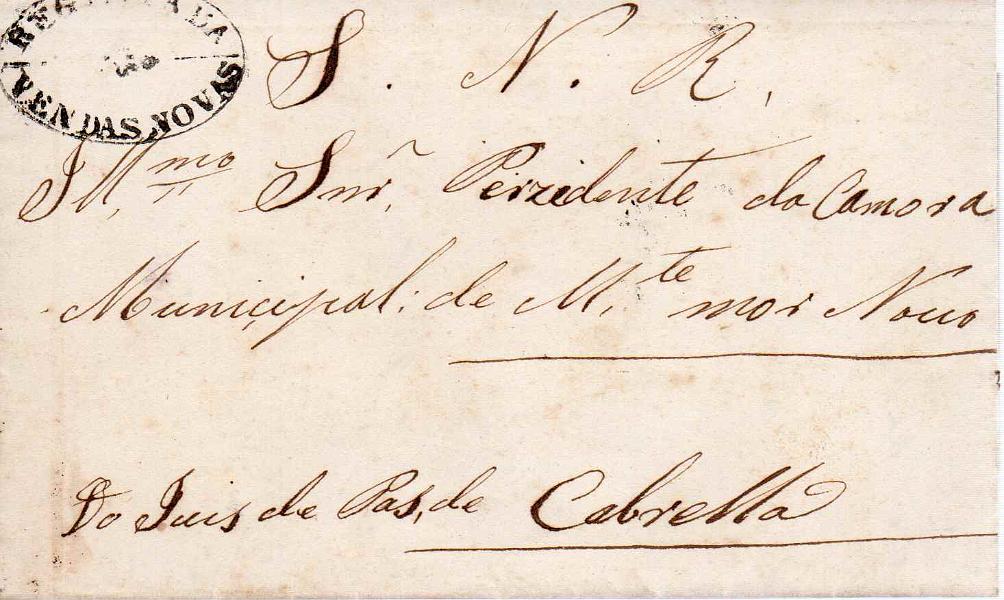 VENDAS NOVAS
S. N. R.
Ill.mo Snr. Perzidente da Camora
Municipal: de M.te mor Novo
Do Juis de Pas, de Cabrella